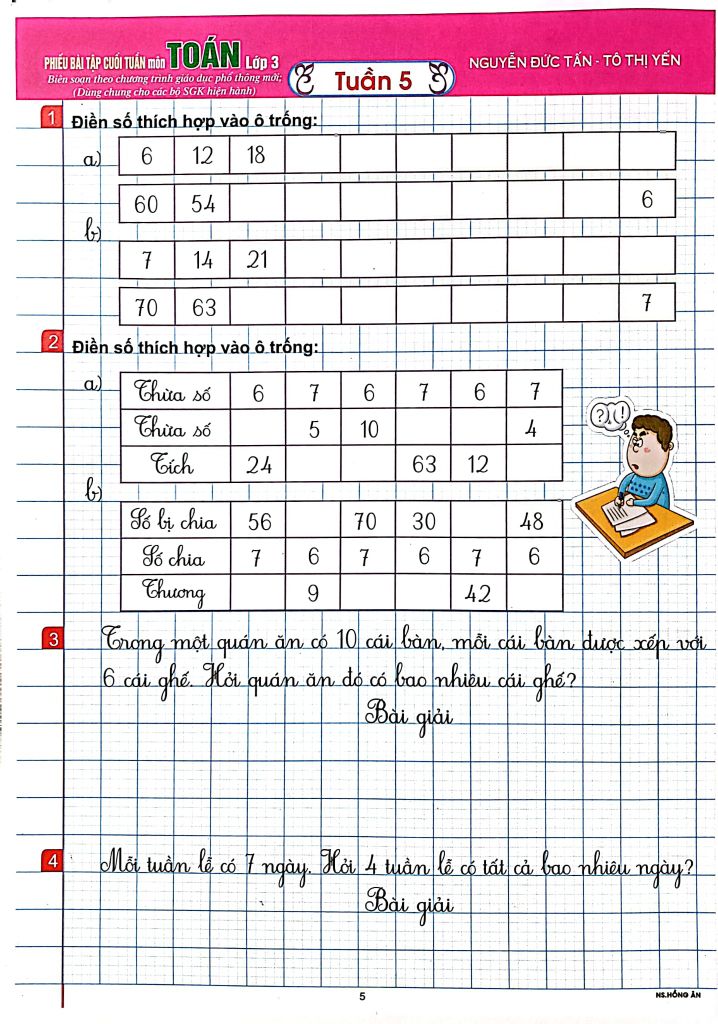 PHIẾU BÀI TẬP CUỐI TUẦN môn TOÁN Lớp 3
Biên soạn theo chương trình giáo dục phổ thông mới;
(Dùng chung cho các bộ SGK hiện hành)
Tuần 5
NGUYỄN ĐỨC TẤN - TÔ THỊ YẾN
1 Điền số thích hợp vào ô trống:
a) 6 12 18
60 54 6
b)
7 14 21
70 63 7
2 Điền số thích hợp vào ô trống:
a) Thừa số 6 7 6 7 6 7
Thừa số 5 10 4
Tích 24 63 12
b)
Số bị chia 56 70 30 48
Số chia 7 6 7 6 7 6
Thương 9 42
? !
3 Trong một quán ăn có 10 cái bàn, mỗi cái bàn được xếp với
6 cái ghế. Hỏi quán ăn đó có bao nhiêu cái ghế?
Bài giải
4 Mỗi tuần lễ có 7 ngày. Hỏi 4 tuần lễ có tất cả bao nhiêu ngày?
Bài giải
5
NS.HỒNG ÂN